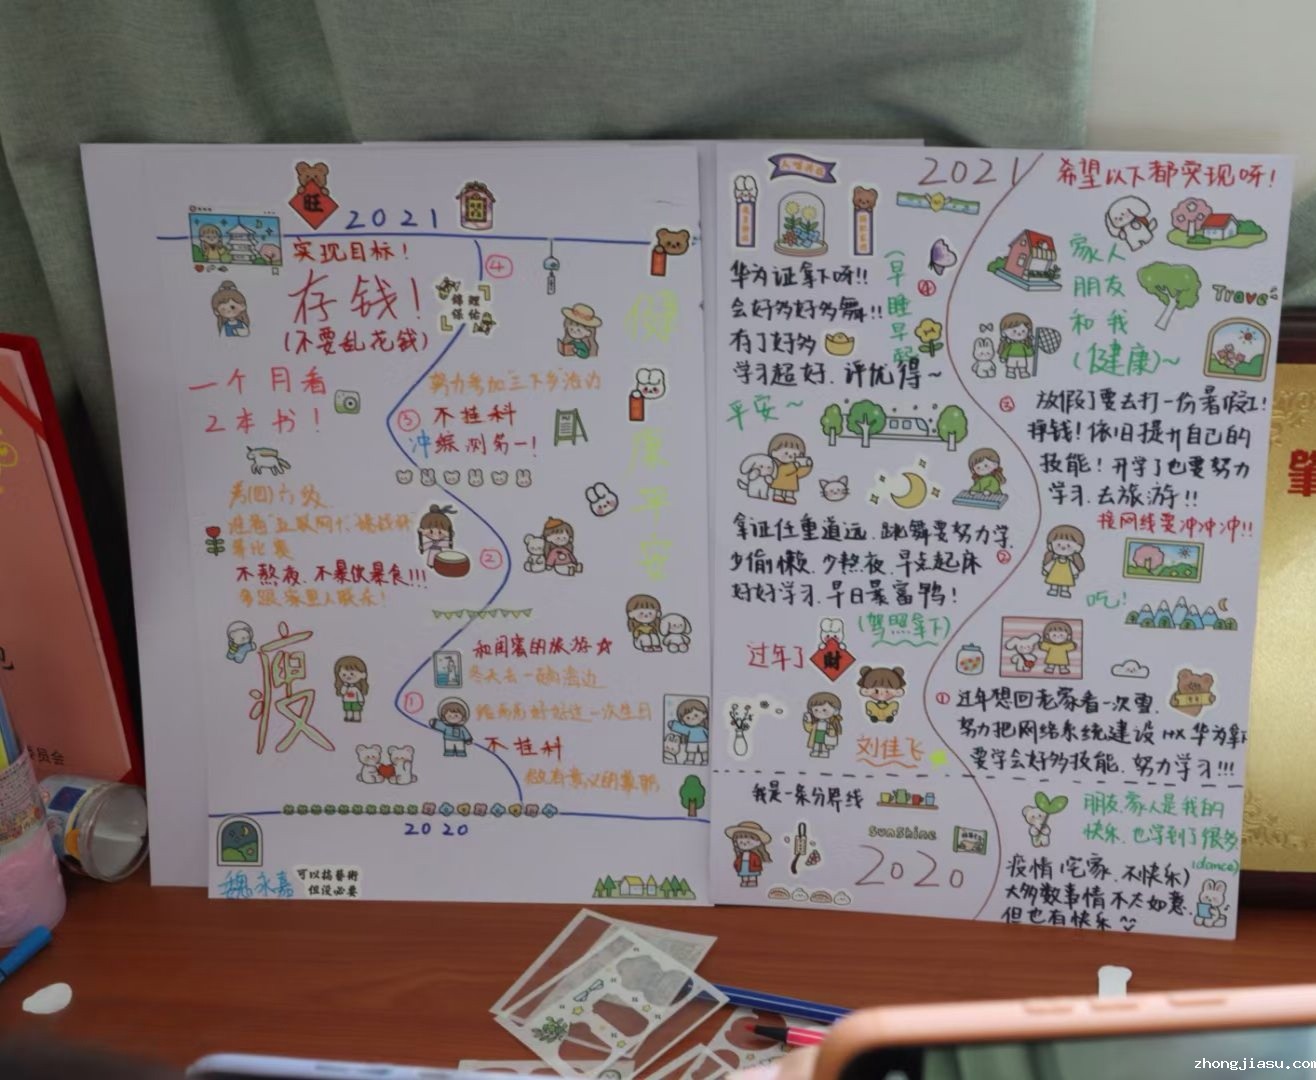 旺
2021
实现目标!
存钱!
(不要乱花钱)
一个月看
2本书!
④
锦鲤
保佑
努力参加"三下乡"活动
③
不挂科
冲综测第一!
考(四)六级
准备"互联网+、挑战杯
等比赛
不熬夜、不暴饮暴食!!!
多跟家里人联系!
②
瘦
和闺蜜的旅游☆
冬天去一趟海边
①
不挂科
做有意义的兼职
健
康
平
安
2020
魏永嘉
可以搞藝術
但没必要
2021
希望以下都实现呀!
华为证拿下呀!!
会好多好多舞!!
有了好多
学习超好、评优得~
(早
睡
早
④
家人
朋友
和我
(健康)~
Travel
平安~
③
放假了要去打一份暑假工!
挣钱!依旧提升自己的
技能!开学了也要努力
学习、去旅游!!
接网线要冲冲冲!!
拿证任重道远、跳舞要努力学、
少偷懒、少熬夜、早点起床
好好学习、早日暴富鸭!
②
吃!
(驾照拿下)
过年了
財
刘佳飞
①
过年想回老家看一次雪、
努力把网络系统建设HX华为拿下
要学会好多技能、努力学习!!!
我是一条分界线
sunshine
2020
朋友、家人是我的
快乐、也学到了很多
(dance)
疫情(宅家、不快乐)
大多数事情不太如意、
但也有快乐
肇
委员会
zhongjiasu.com